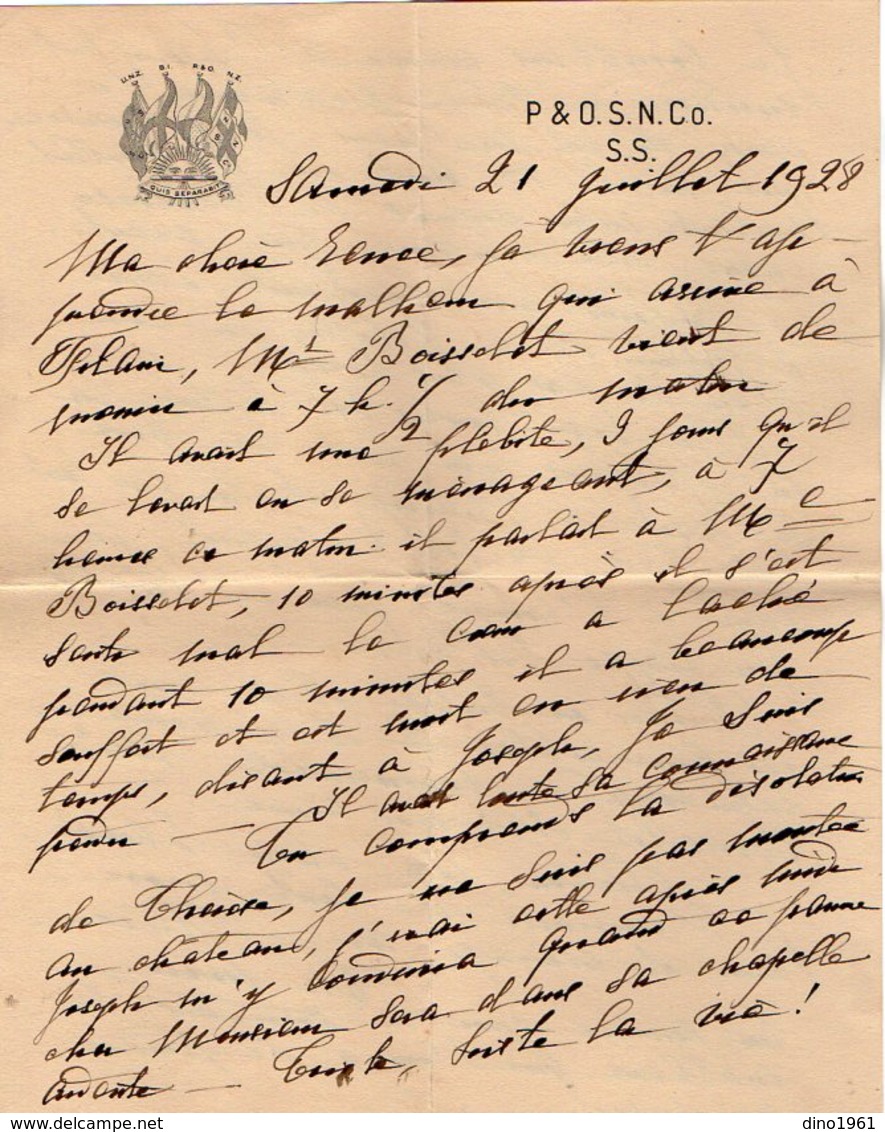 U.N.Z. B.I. P.&O. N.Z.
QUIS SEPARABIT
P & O. S. N. Co.
S.S.
Samedi 21 juillet 1928
Ma chère Renée, je viens t'ap-
prendre le malheur qui arrive à
Mr Boisselot vient de
mourir à 7 h. 1/2 du matin
Il avait une flebite, 9 jours qu'il
se levait en se ménageant, à 7
heures ce matin il parlait à Me
Boisselot, 10 minutes après il s'est
senti mal le cœur a laché
pendant 10 minutes il a beaucoup
souffert et est mort en rien de
temps, disant à Joseph, Je suis
perdu — Il avait toute sa connaissance
Tu comprends la désolation
de Thérèse, je ne suis pas montée
au château, j'irai cette après midi
Joseph m'y conduira quand ce pauvre
cher Monsieur sera dans sa chapelle
ardente — Triste, triste la vie !
dino1961